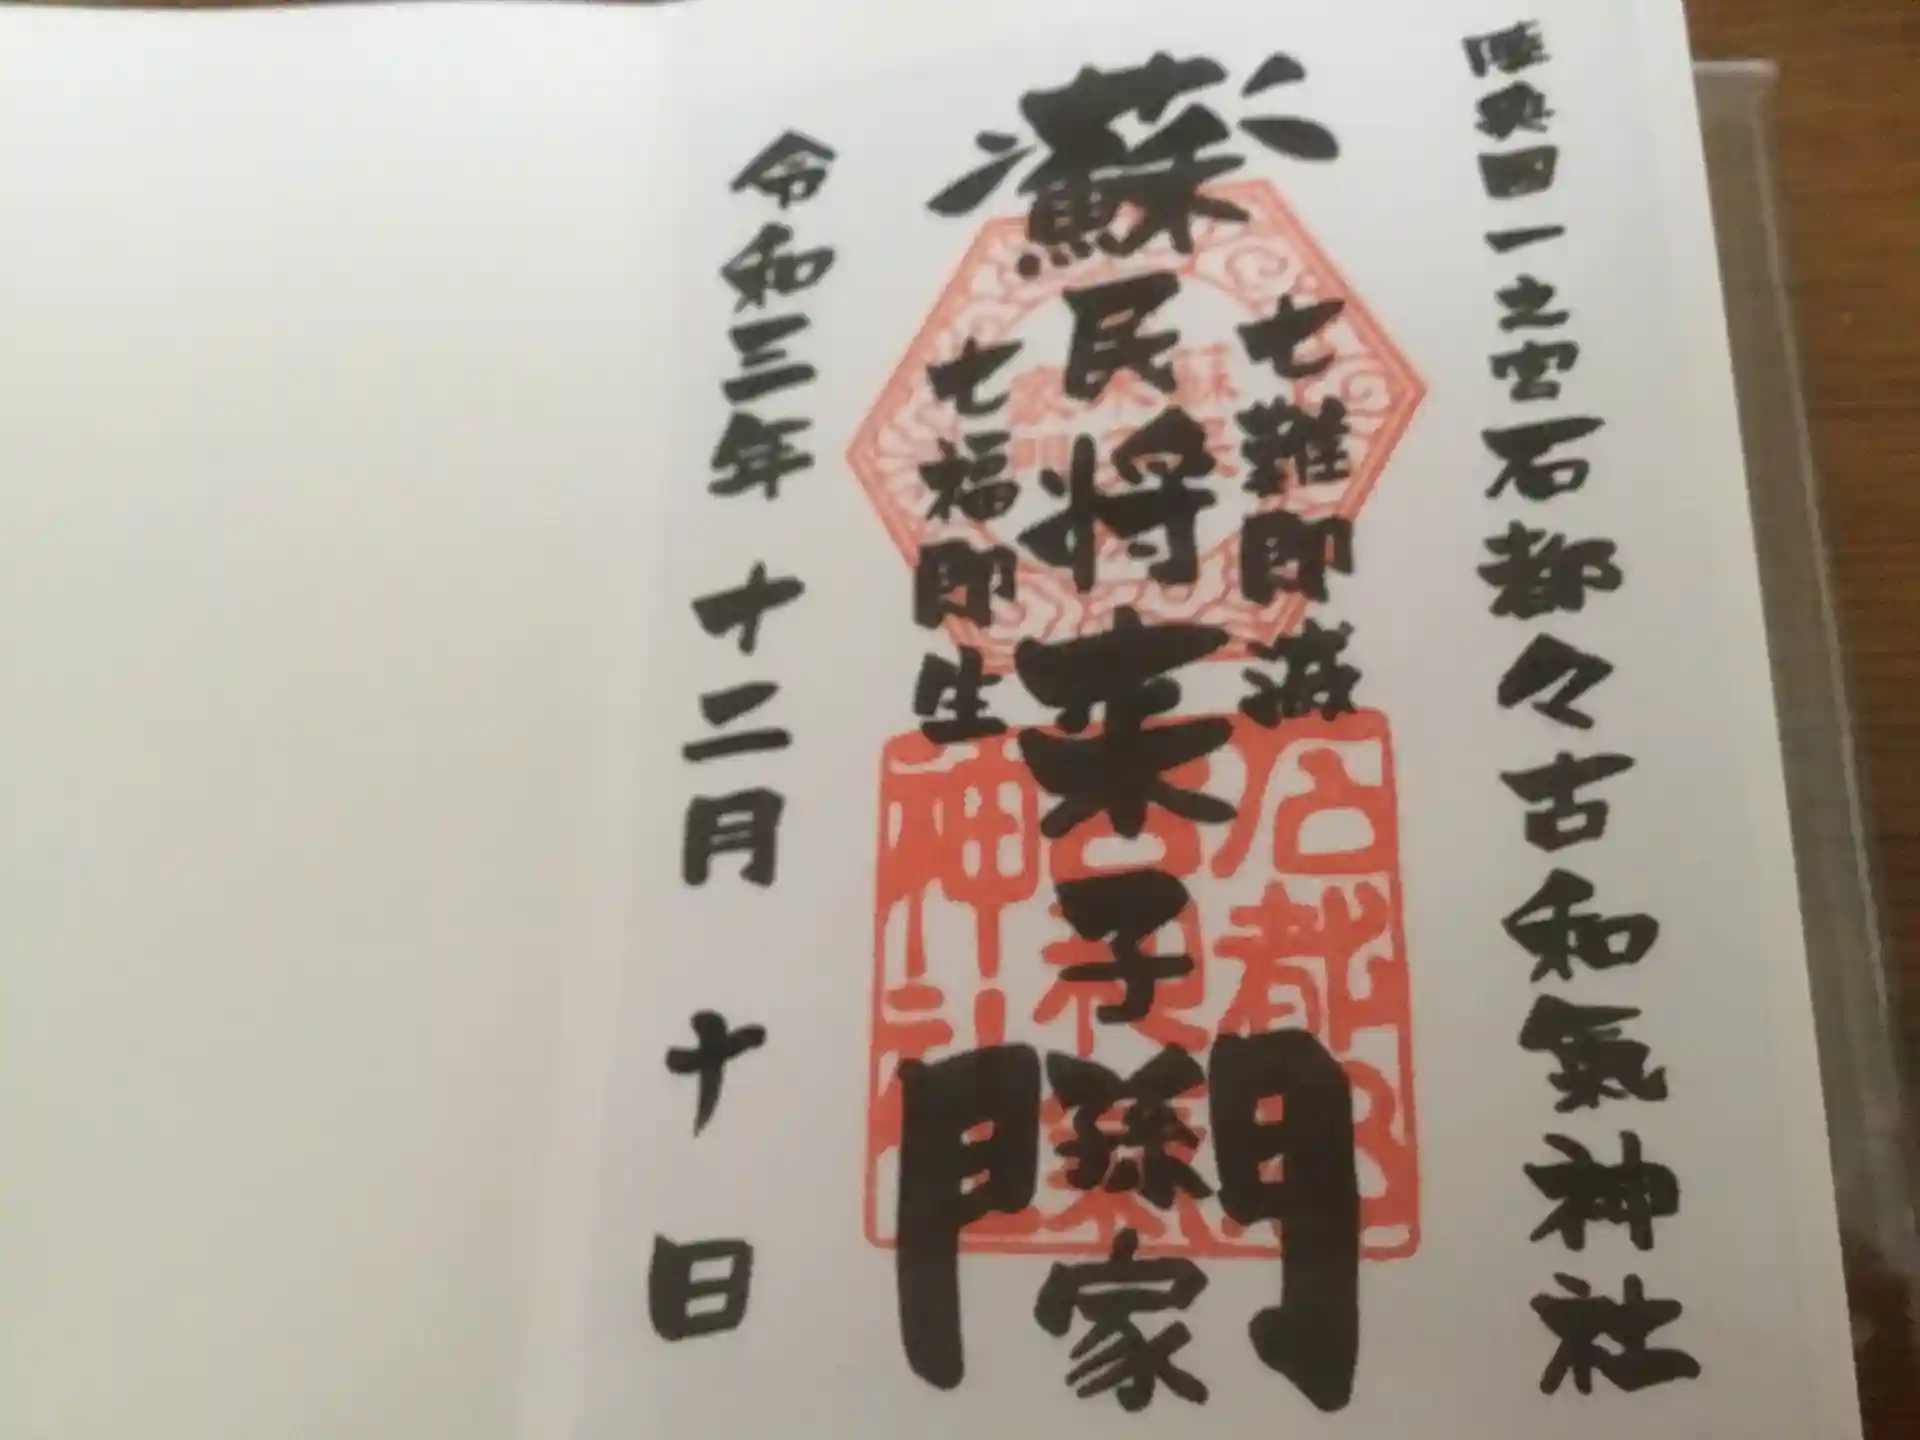 陸奥国一之宮石都々古和氣神社
七難即滅
蘇民将来子孫家門
七福即生
令和三年 十二月 十日
石都々古和氣神社